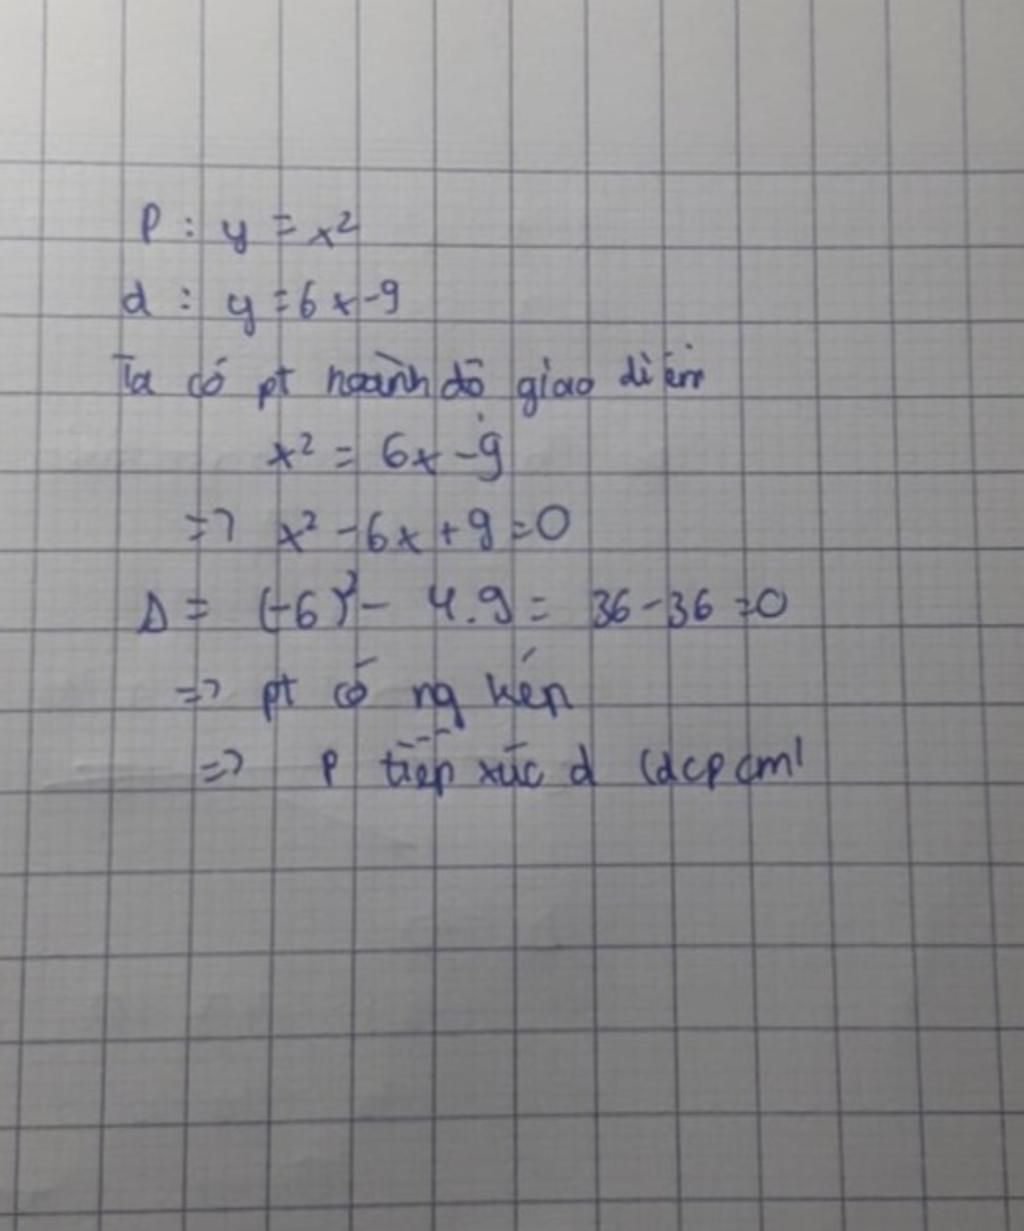 P : y = x²
d : y = 6x-9
Ta có pt hoành độ giao điểm
x² = 6x - 9
=> x² - 6x + 9 = 0
Δ = (-6)² - 4.9 = 36 - 36 = 0
=> pt có ng kép
=> P tiếp xúc d (đcpcm)